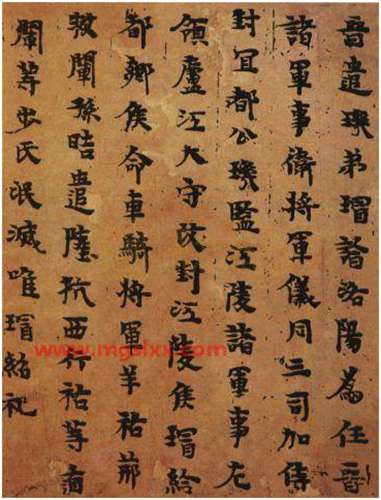 晉遣璣弟璿詣洛陽為任晉
諸軍事衛將軍儀同三司加侍
封宜都公璣監江陵諸軍事左
領廬江大守改封江陵侯璿給
都鄉侯命車騎將軍羊祜荊
救闡孫晧遣陸抗西行祜等遁
闡等步氏泯滅唯璿紹祀
www.mgslxx.com